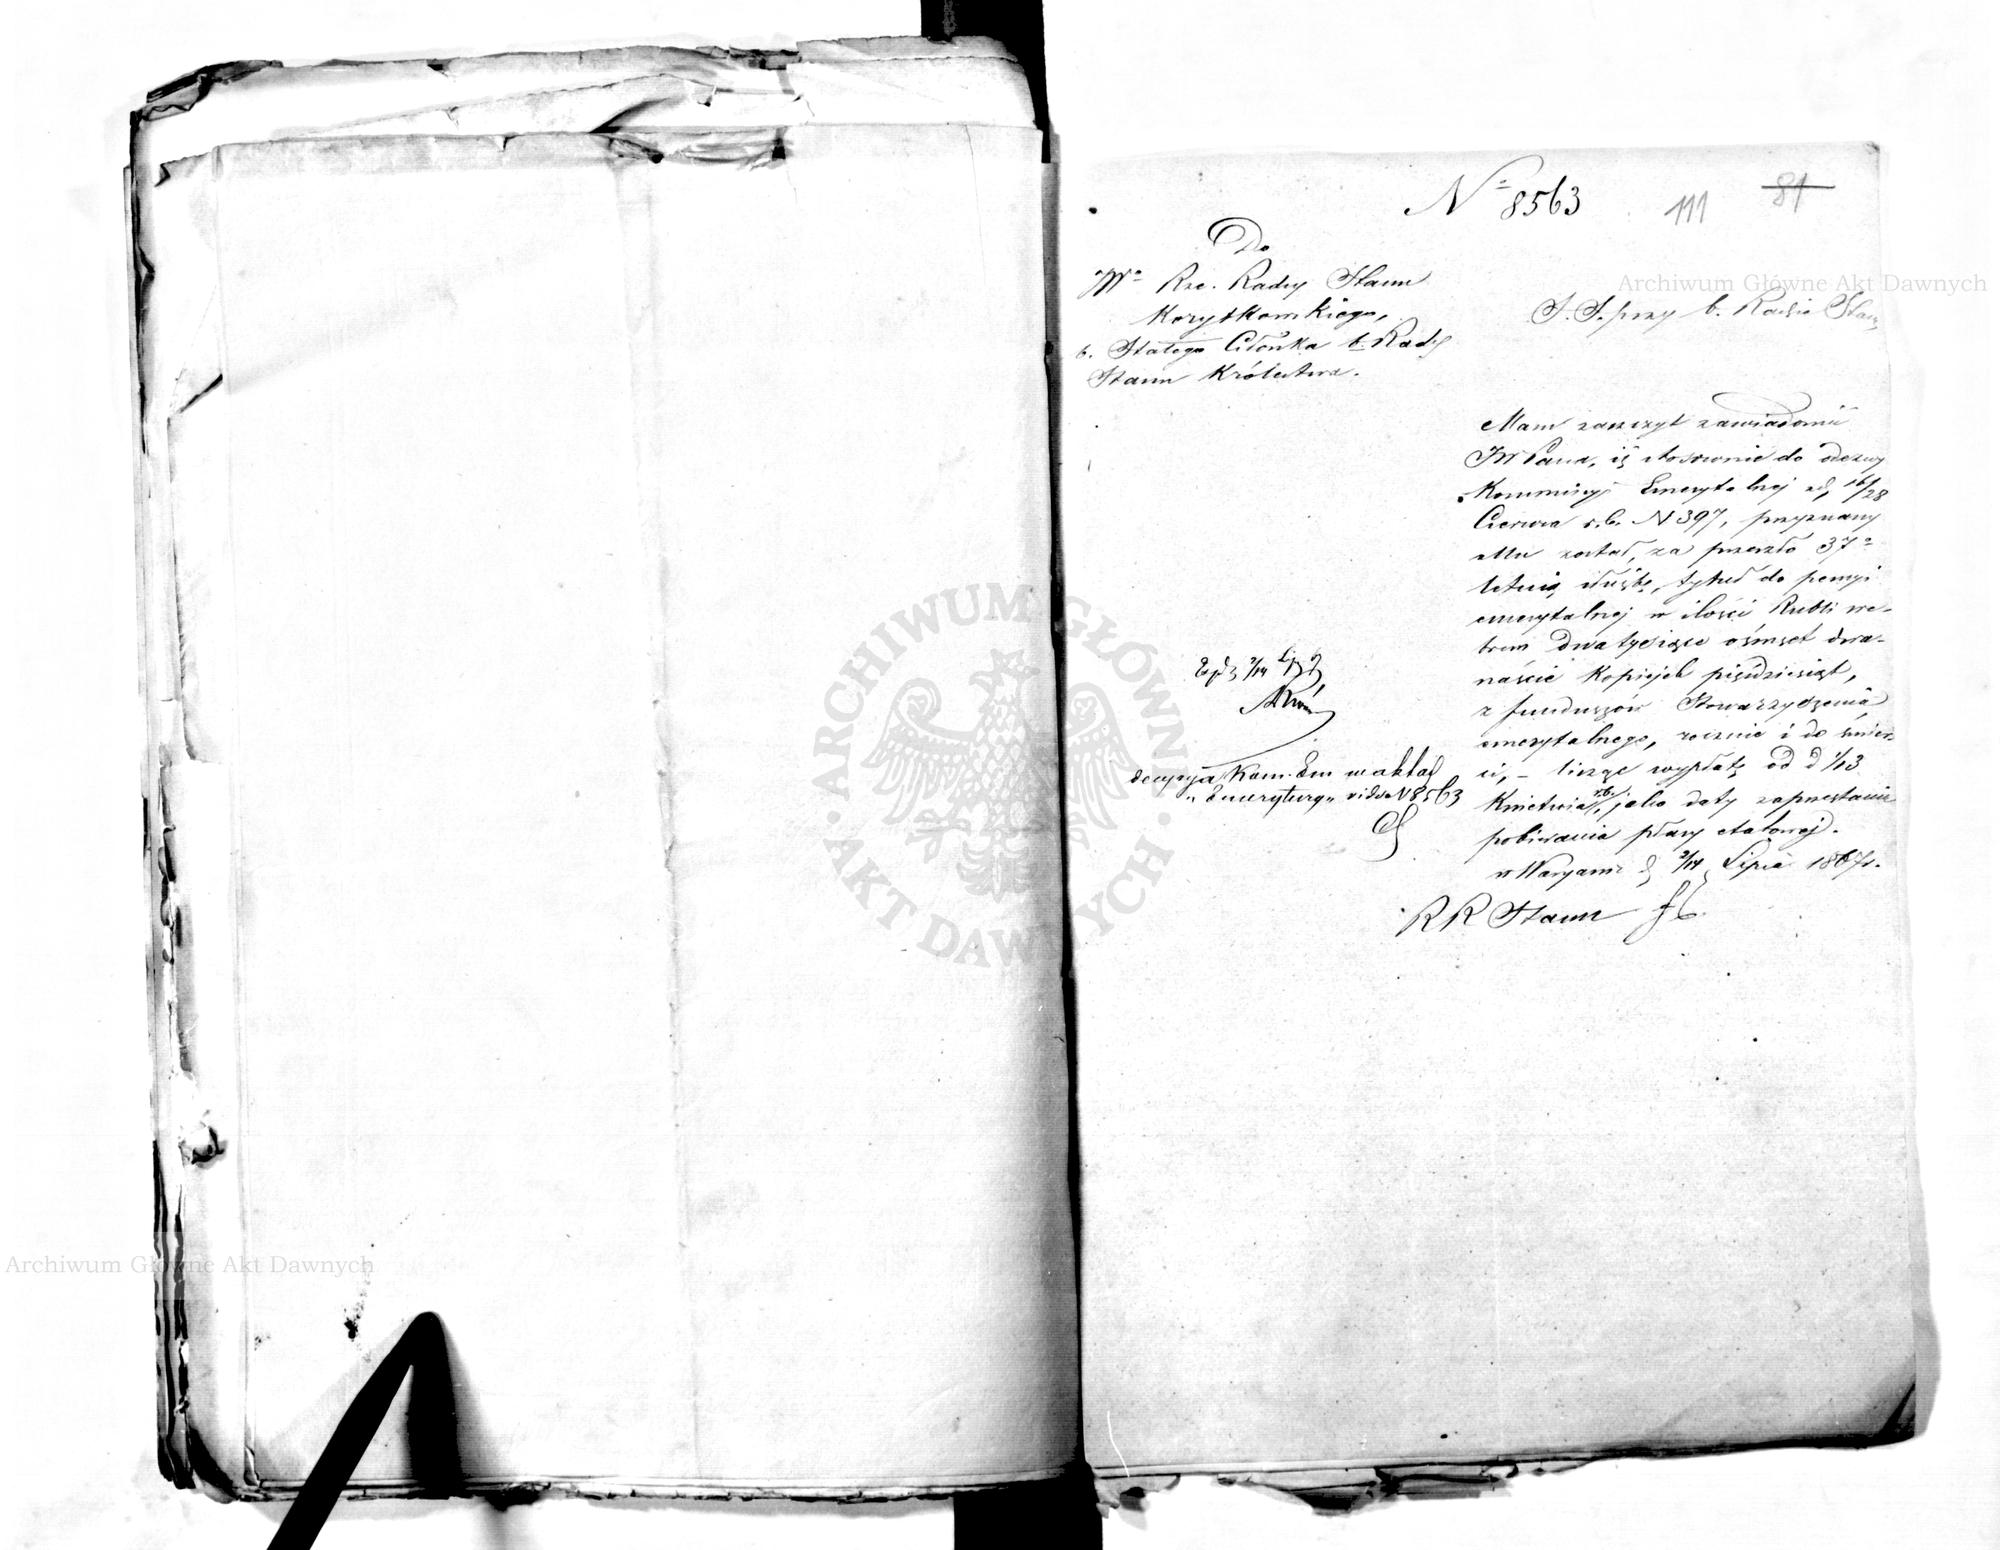 Nº 8563
111
81
Do
JWº Rze. Radcy Stanu
Korytkowskiego,
b. Stałego Członka b. Rady
Stanu Królestwa.
S. S. przy b. Radzie Stanu
Mam zaszczyt zawiadomić
JWPana, iż stosownie do odezwy
Kommisyi Emerytalnej z d, 16/28
Czerwca r.b. N 397, przyznany
Mu został, za przeszło 37º
letnią służbę, tytuł do pensyi
emerytalnej w ilości Rubli sre-
brem dwa tysiące ośmset dwa-
naście Kopiejek pięćdziesiąt,
z funduszów Stowarzyszenia
emerytalnego, rocznie i do śmier-
ci, - licząc wypłatę od d 1/13
Kwietnia r.b., jako daty zaprzestania
pobierania płacy etatowej.
w Warszawie d 2/14 Lipca 1867r.
R R Stanu
2/14
decyzya Kom. Em w aktach
"Emerytury" vide N 8563
ARCHIWUM GŁÓWNE
AKT DAWNYCH
Archiwum Główne Akt Dawnych
Archiwum Główne Akt Dawnych